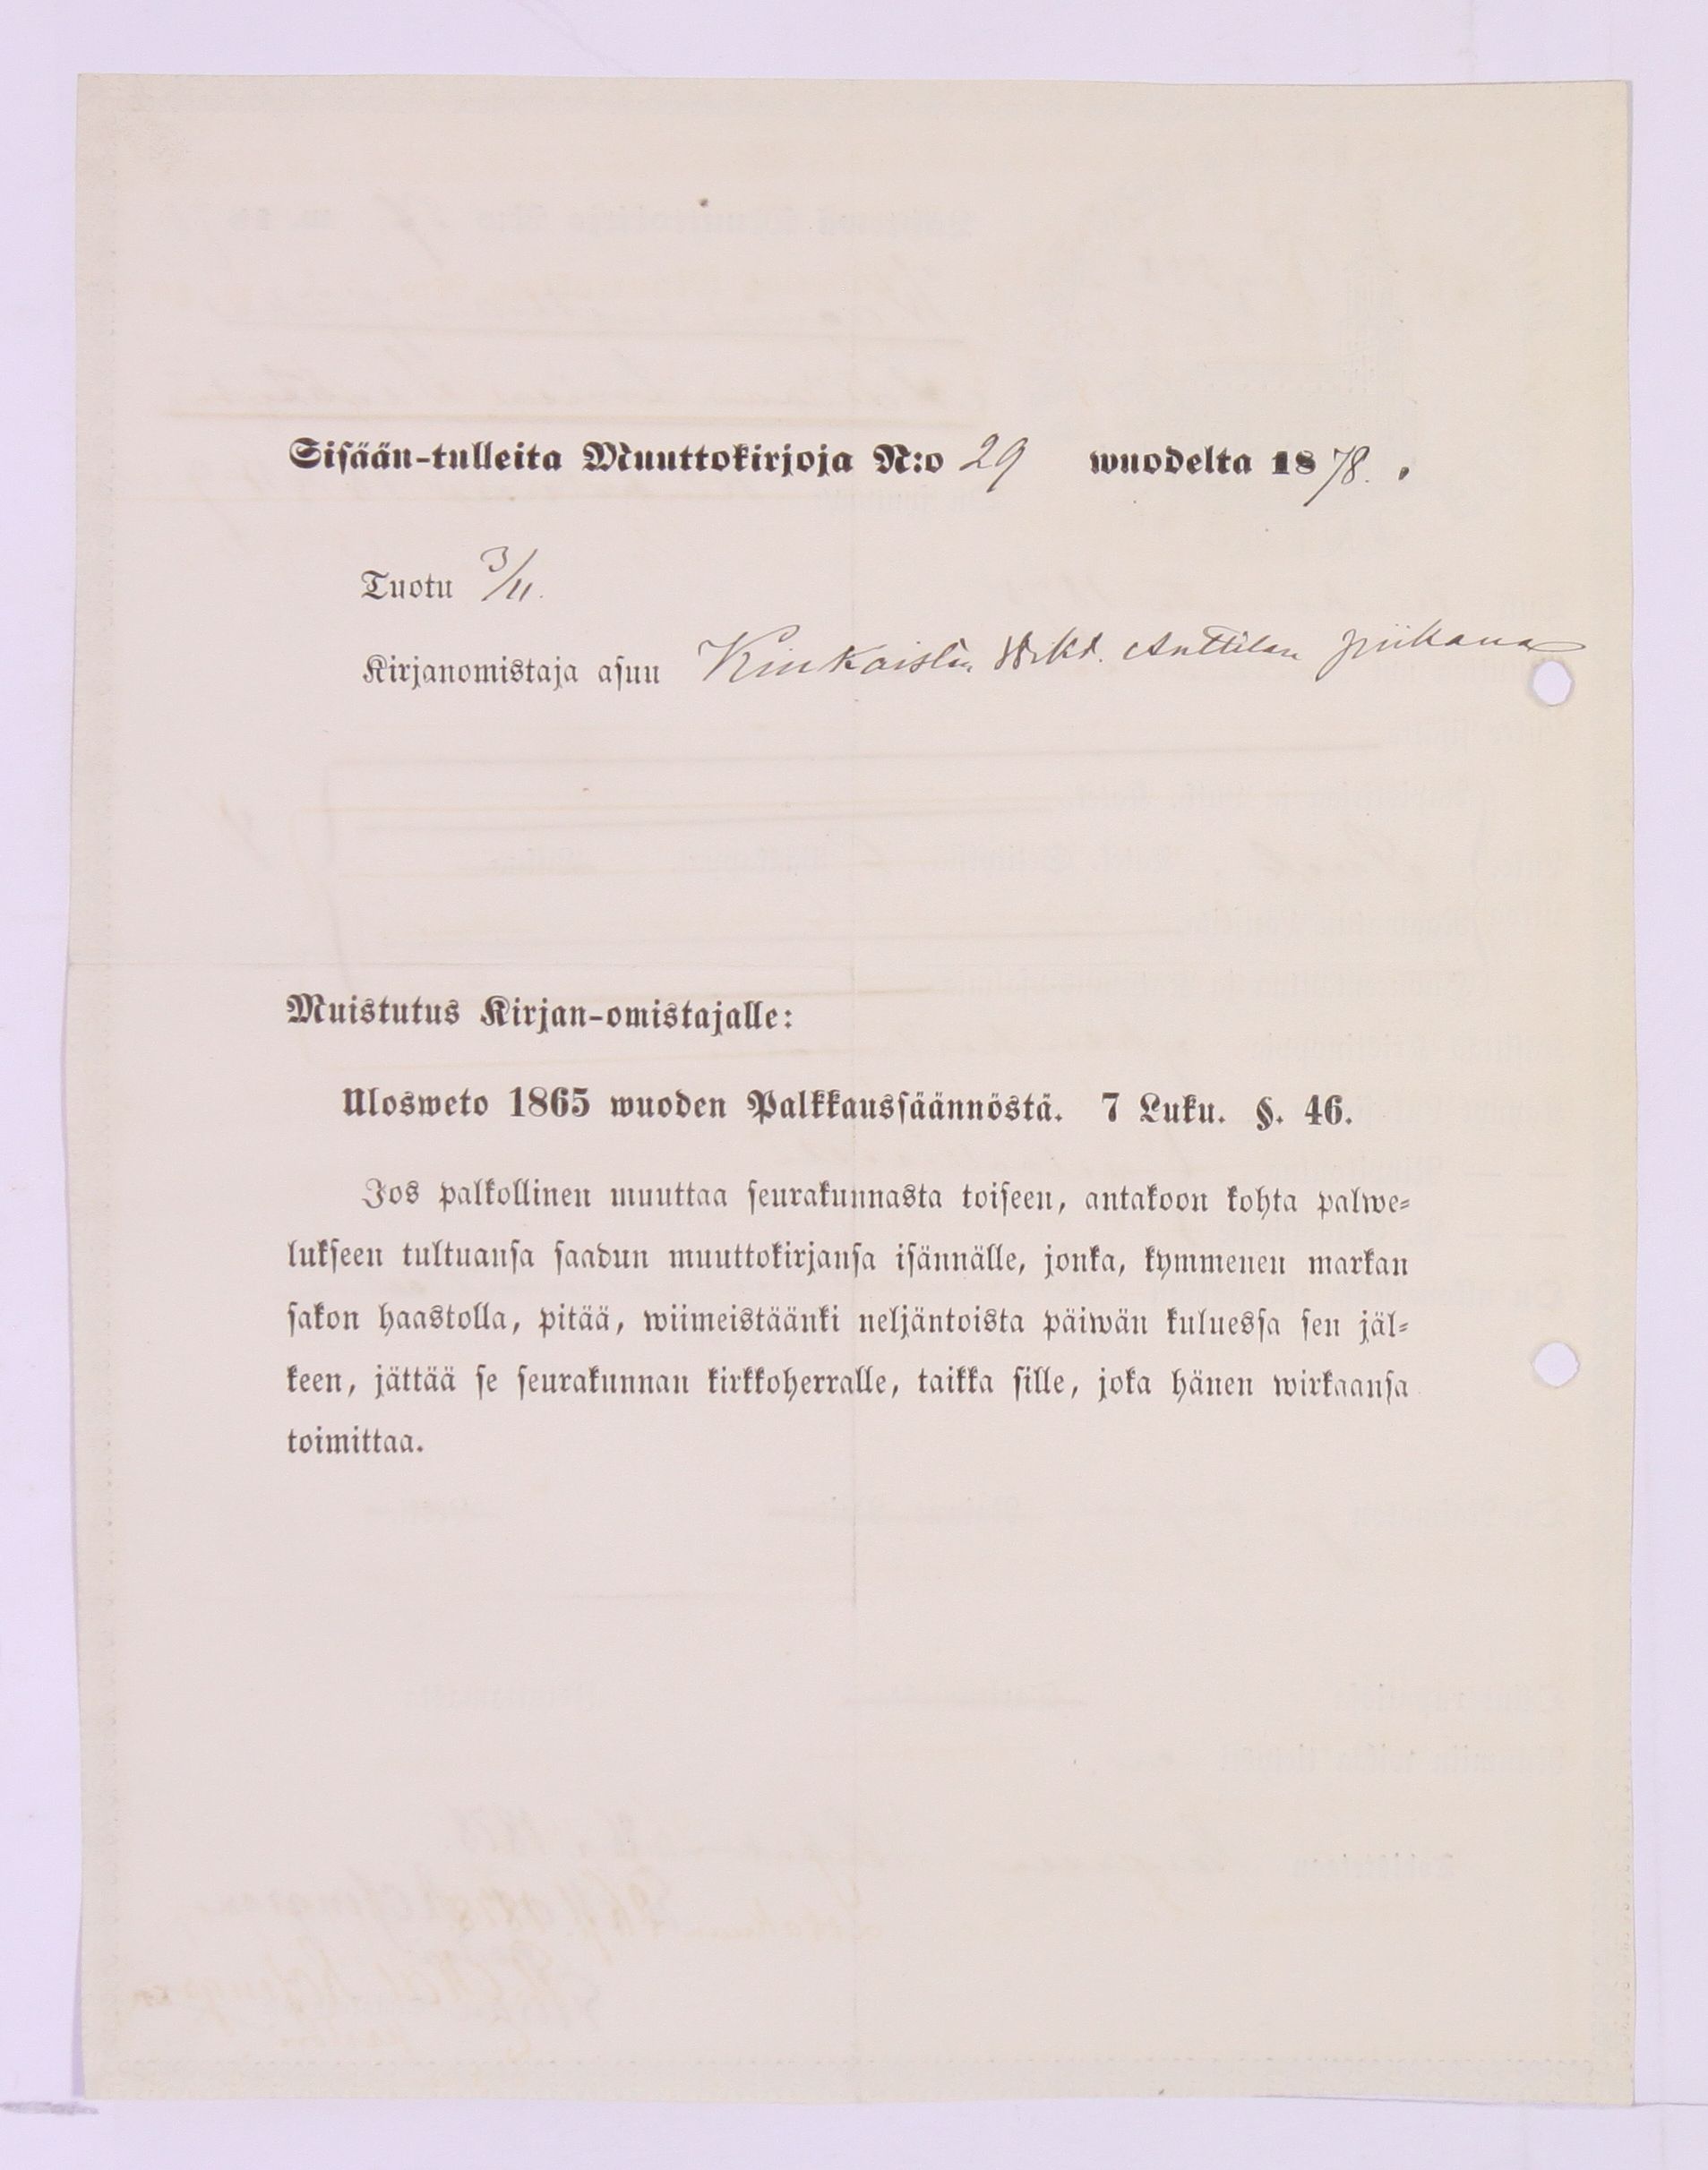 Sisään-tulleita Muuttokirjoja N:o 29 wuodelta 1878.
Tuotu 3/11.
Kirjanomistaja asuu Kinkaisten Anttilan piikana
Muistutus Kirjan-omistajalle:
Ulosweto 1865 wuoden Palkkaussäännöstä. 7 Luku. §. 46.
Jos palkollinen muuttaa seurakunnasta toiseen, antakoon kohta palwe-
lukseen tultuansa saadun muuttokirjansa isännälle, jonka, kymmenen markan
sakon haastolla, pitää, wiimeistäänki neljäntoista päiwän kuluessa sen jäl-
keen, jättää se seurakunnan kirkkoherralle, taikka sille, joka hänen wirkaansa
toimittaa.